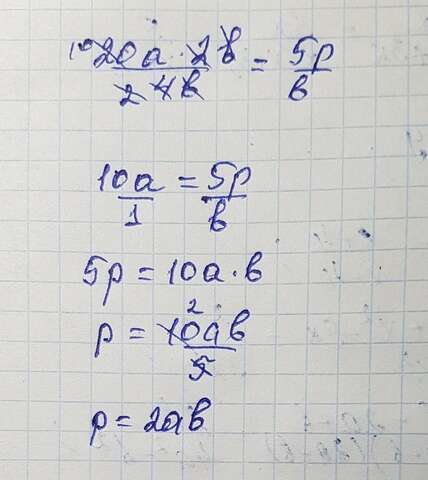 ¹⁰20a · 2b / ₂4b = 5p / b
10a / 1 = 5p / b
5p = 10a · b
p = ²10ab / 5
p = 2ab